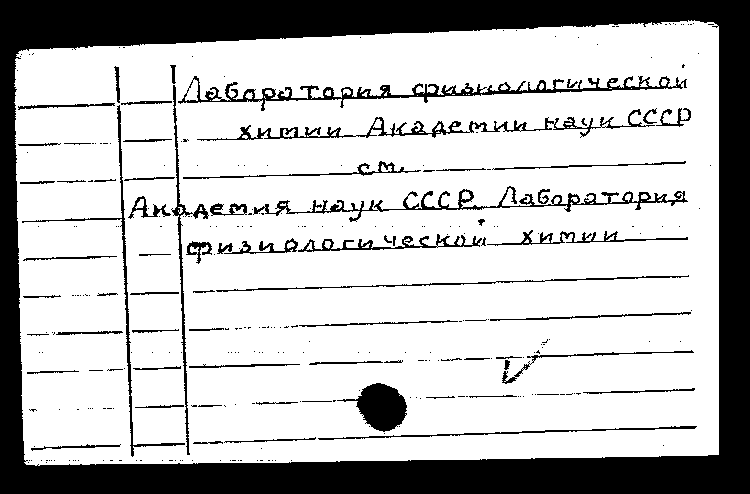 Лаборатория физиологической
химии Академии наук СССР
см.
Академия наук СССР. Лаборатория
физиологической химии